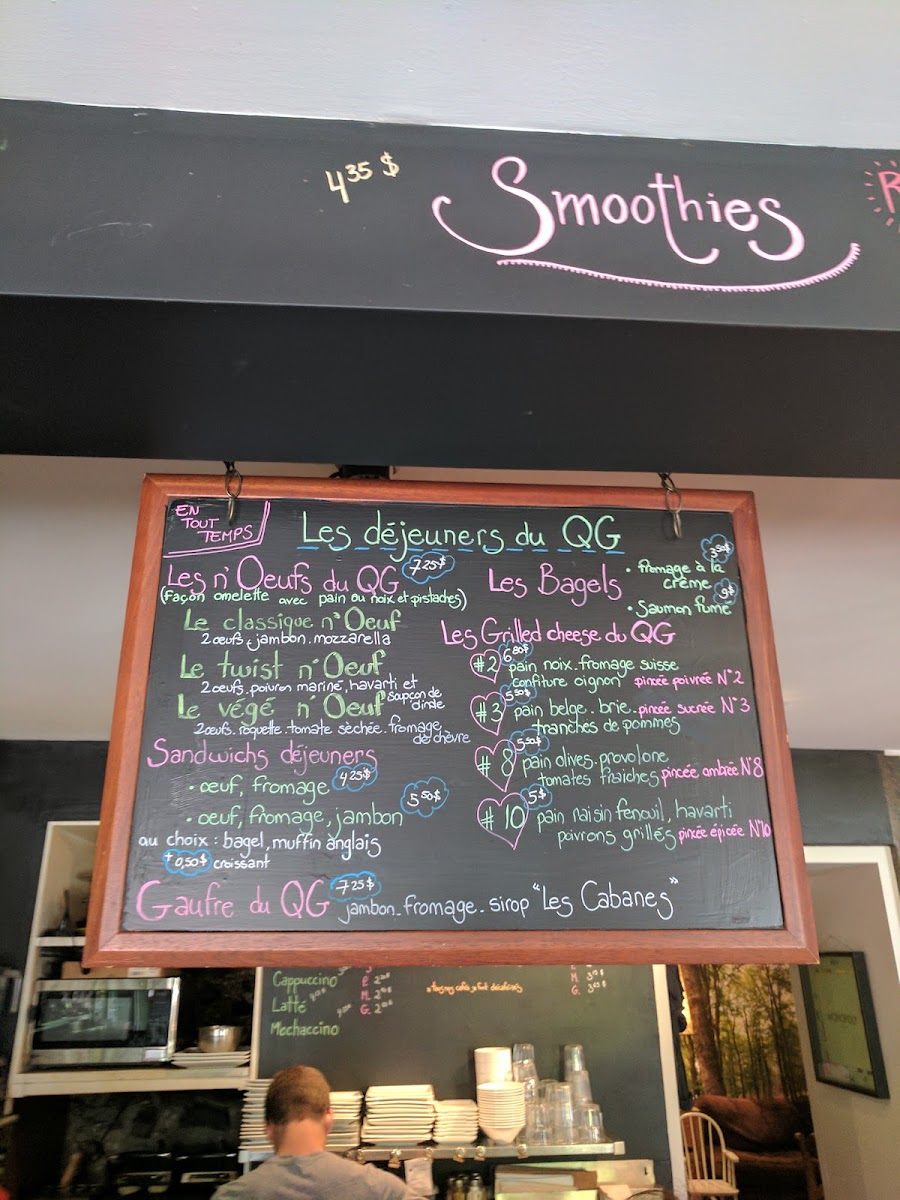 4 35 $
Smoothies
R
EN
TOUT
TEMPS
Les déjeuners du QG
Les n'Oeufs du QG 7 25 $
(façon omelette avec pain au noix et pistaches)
Le classique n'Oeuf
2 oeufs, jambon. mozzarella
Le twist n'Oeuf
2 oeufs, poivron mariné, havarti et
soupçon de
dinde
Le végé n'Oeuf
2 oeufs. roquette. tomate sèchée. fromage
de chèvre
Sandwichs déjeuners
• oeuf, fromage 4 25 $
• oeuf, fromage, jambon 5 50 $
au choix : bagel, muffin anglais
+ 0,50 $ croissant
Les Bagels
• fromage à la 3 50 $
crème
• Saumon fumé 9 $
Les Grilled cheese du QG
#2 6 80 $ pain noix. fromage suisse
confiture oignon pincée poivrée N°2
#3 5 50 $ pain belge. brie. pincée sucrée N°3
tranches de pommes
#8 5 50 $ pain olives. provolone
tomates fraiches pincée ambrée N°8
#10 5 $ pain raisin fenouil, havarti
poivrons grillés pincée épicée N°10
Gaufre du QG 7 25 $ jambon. fromage. sirop "Les Cabanes"
Cappuccino
Latté
Mochaccino
P.
M.
G.
M.
G.